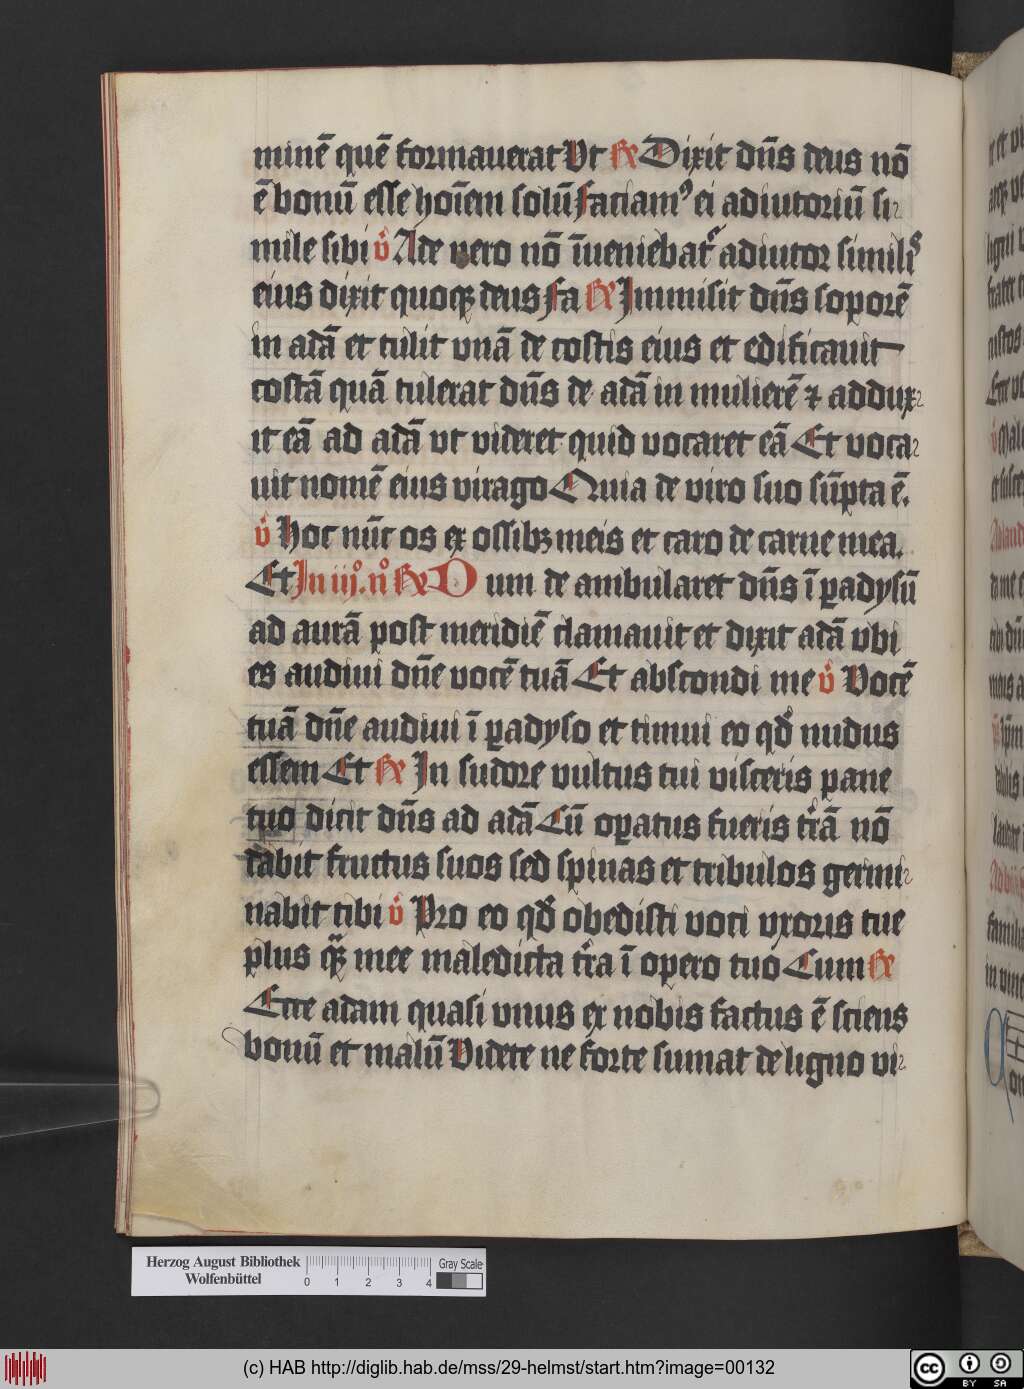 minē quē formauerat Vt ℟ Dixit dn̄s deus nō
ē bonū esse hoīem solū faciamꝰ ei adiutoriū si
mile sibi v̊ Ade vero nō īueniebatr̉ adiutor similis
eius dixit quoqꝫ deus Fa ℟ Immisit dn̄s soporē
in adā et tulit vnā de costis eius et edificauit
costā quā tulerat dn̄s de adā in mulierē ⁊ addux
it eā ad adā vt videret quid vocaret eā Et voca
uit nomē eius virago Quia de viro suo sūpta ē.
v̊ Hoc nūc os ex ossibꝫ meis et caro de carne mea.
Et In iij̊. n̊ ℟ Dum de ambularet dn̄s ī ꝑadysū
ad aurā post meridiē clamauit et dixit adā vbi
es audiui dn̄e vocē tuā Et abscondi me v̊ Vocē
tuā dn̄e audiui ī ꝑadyso et timui eo qd̛ nudus
essem Et ℟ In sudore vultus tui visceris pane
tuo dicit dn̄s ad adā Cū oꝑatus fueris tr̄ā nō
dabit fructus suos sed spinas et tribulos germi
nabit tibi v̊ Pro eo qd̛ obedisti voci vxoris tue
plus qͣꝫ mee maledicta tr̄a ī opero tuo Cum ℟
Ecce adam quasi vnus ex nobis factus ē sciens
bonū et malū Videte ne forte sumat de ligno vi
Herzog August Bibliothek
Wolfenbüttel
0 1 2 3 4
Gray Scale
(c) HAB http://diglib.hab.de/mss/29-helmst/start.htm?image=00132
cc BY SA